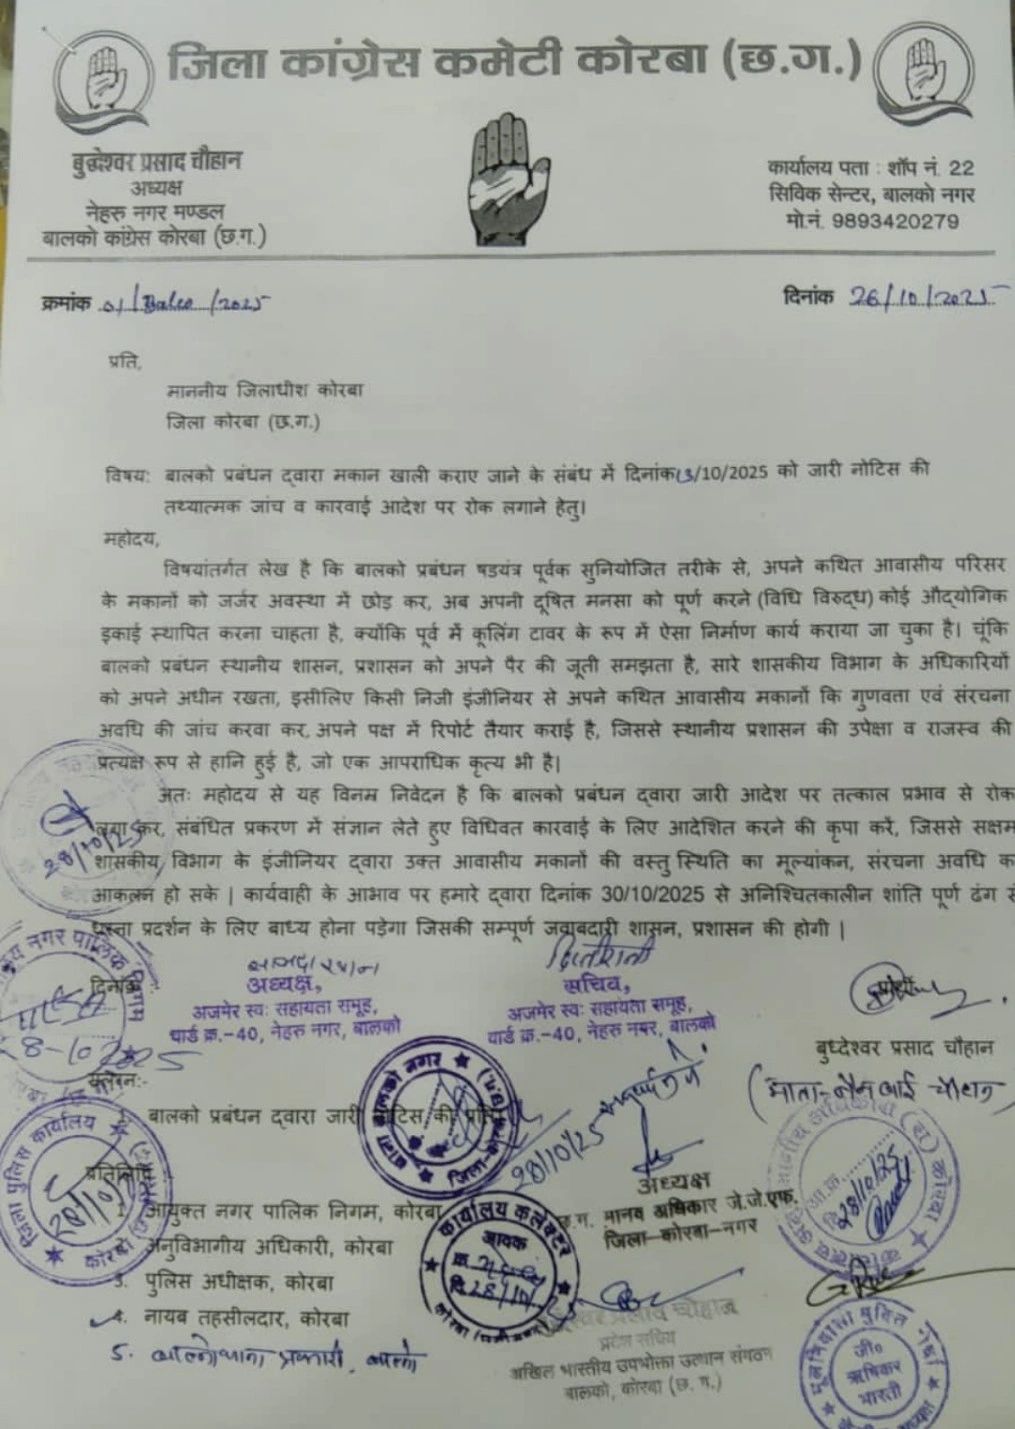 जिला कांग्रेस कमेटी कोरबा (छ.ग.)
बुद्धेश्वर प्रसाद चौहान
अध्यक्ष
नेहरु नगर मण्डल
बालको कांग्रेस कोरबा (छ.ग.)
कार्यालय पता : शॉप नं. 22
सिविक सेन्टर, बालको नगर
मो.नं. 9893420279
क्रमांक 01/Balco/2025
दिनांक 26/10/2025
प्रति,
माननीय जिलाधीश कोरबा
जिला कोरबा (छ.ग.)
विषय: बालको प्रबंधन द्वारा मकान खाली कराए जाने के संबंध में दिनांक13/10/2025 को जारी नोटिस की
तथ्यात्मक जांच व कारवाई आदेश पर रोक लगाने हेतु।
महोदय,
विषयांतर्गत लेख है कि बालको प्रबंधन षडयंत्र पूर्वक सुनियोजित तरीके से, अपने कथित आवासीय परिसर
के मकानों को जर्जर अवस्था में छोड कर, अब अपनी दूषित मनसा को पूर्ण करने (विधि विरुद्ध) कोई औद्योगिक
इकाई स्थापित करना चाहता है, क्योंकि पूर्व में कूलिंग टावर के रूप में ऐसा निर्माण कार्य कराया जा चुका है। चूंकि
बालको प्रबंधन स्थानीय शासन, प्रशासन को अपने पैर की जूती समझता है, सारे शासकीय विभाग के अधिकारियों
को अपने अधीन रखता, इसीलिए किसी निजी इंजीनियर से अपने कथित आवासीय मकानों कि गुणवता एवं संरचना
अवधि की जांच करवा कर, अपने पक्ष में रिपोर्ट तैयार कराई है, जिससे स्थानीय प्रशासन की उपेक्षा व राजस्व की
प्रत्यक्ष रूप से हानि हुई है, जो एक आपराधिक कृत्य भी है|
अतः महोदय से यह विनम्र निवेदन है कि बालको प्रबंधन द्वारा जारी आदेश पर तत्काल प्रभाव से रोक
लगा कर, संबंधित प्रकरण में संज्ञान लेते हुए विधिवत कारवाई के लिए आदेशित करने की कृपा करें, जिससे सक्षम
शासकीय विभाग के इंजीनियर द्वारा उक्त आवासीय मकानों की वस्तु स्थिति का मूल्यांकन, संरचना अवधि का
आकलन हो सके | कार्यवाही के आभाव पर हमारे द्वारा दिनांक 30/10/2025 से अनिश्चितकालीन शांति पूर्ण ढंग से
धरना प्रदर्शन के लिए बाध्य होना पड़ेगा जिसकी सम्पूर्ण जवाबदारी शासन, प्रशासन की होगी |
28/10/25
नगर पालिक निगम
दिनांक
अध्यक्ष,
अजमेर स्वः सहायता समूह,
वार्ड क्र.-40, नेहरु नगर, बालको
सचिव,
अजमेर स्वः सहायता समूह,
वार्ड क्र.-40, नेहरु नगर, बालको
प्रार्थी
बुध्देश्वर प्रसाद चौहान
8-10-2025
संलग्न:-
1. बालको प्रबंधन द्वारा जारी नोटिस की प्रति
थाना बालको नगर
जिला-कोरबा
28/10/25
जिला पुलिस कार्यालय
कोरबा
प्रतिलिपि
1. आयुक्त नगर पालिक निगम, कोरबा
2. अनुविभागीय अधिकारी, कोरबा
3. पुलिस अधीक्षक, कोरबा
4. नायब तहसीलदार, कोरबा
5. बालको थाना प्रभारी, बालको
अध्यक्ष
छ.ग. मानव अधिकार जे.जे.एफ.
जिला-कोरबा-नगर
28/10/25
कार्यालय कलेक्टर
आवक
प्रसाद चौहान
प्रदेश सचिव
अखिल भारतीय उपभोक्ता उत्थान संगठन
बालको, कोरबा (छ. ग.)
मूलनिवासी मुक्ति मोर्चा
जी०
ऋषिकार
भारती